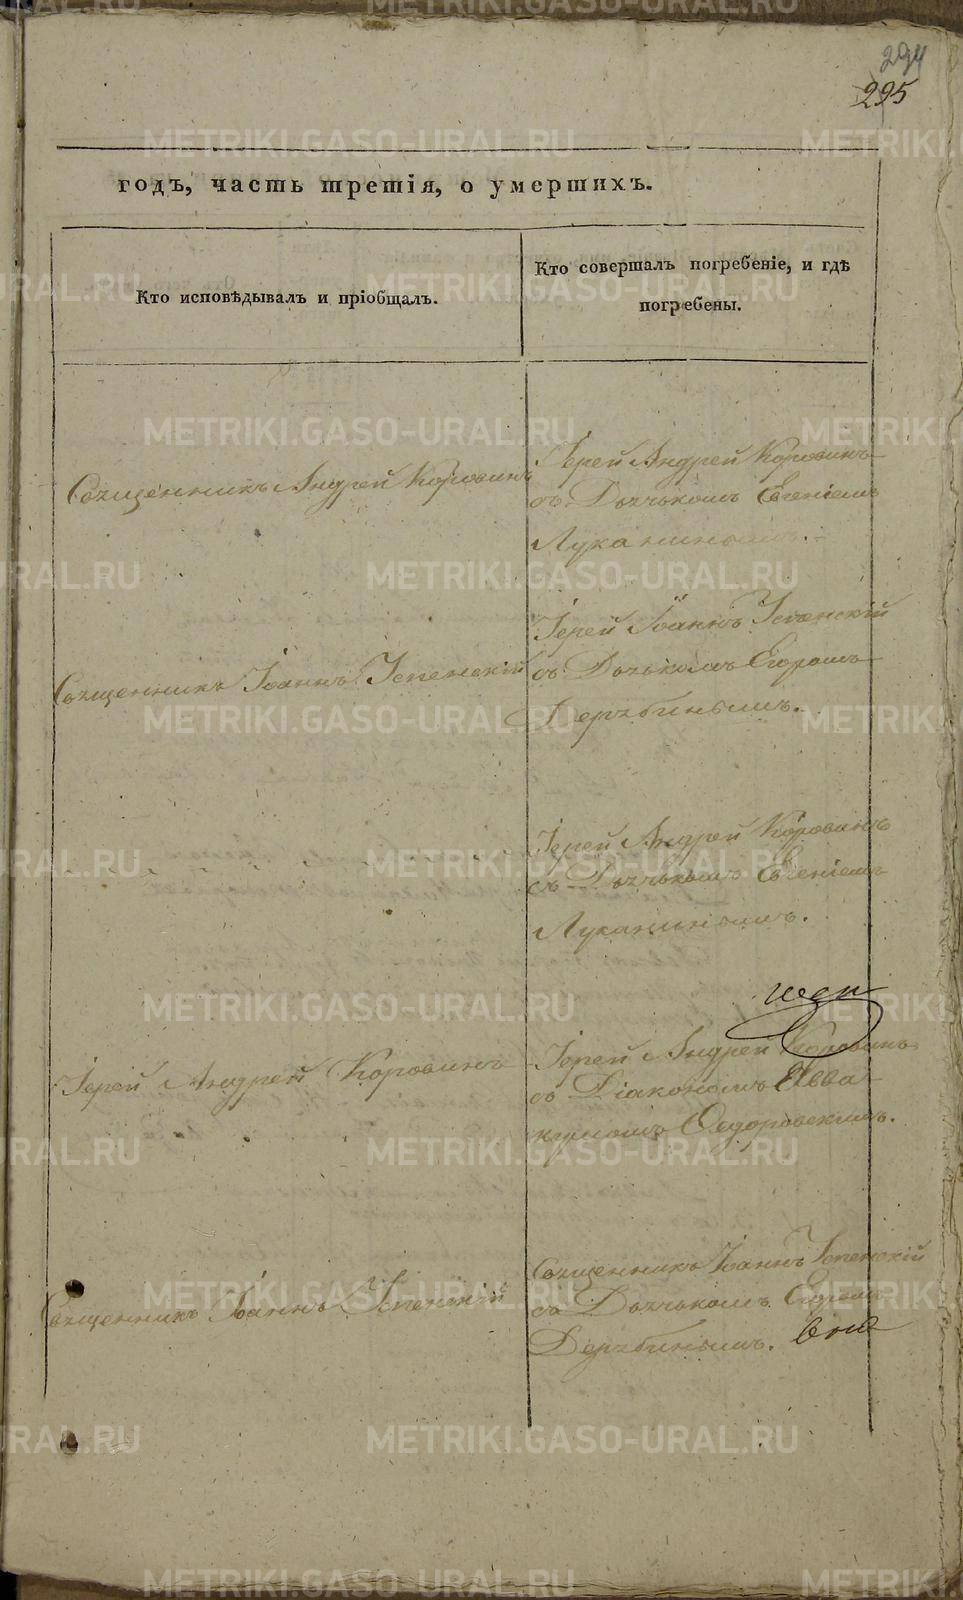 294
295
годъ, часть третія, о умершихъ.
Кто исповѣдывалъ и пріобщалъ.
Кто совершалъ погребеніе, и гдѣ
погребены.
Священникъ Андрей Коровинъ
Іерей Андрей Коровинъ
съ Дьячькомъ Евгеніемъ
Луканинымъ.
Священникъ Іоаннъ Успенскій
Іерей Іоаннъ Успенскій
съ Дьячькомъ Егоромъ
Дерябинымъ.
Іерей Андрей Коровинъ
съ Дьячькомъ Евгеніемъ
Луканинымъ.
Іерей Андрей Коровинъ
Іерей Андрей Коровинъ
съ Діакономъ Авва
кумомъ Федоровскимъ.
Священникъ Іоаннъ Успенскій
Священникъ Іоаннъ Успенскій
съ Дьячькомъ Егоромъ
Дерябинымъ.
METRIKI.GASO-URAL.RU